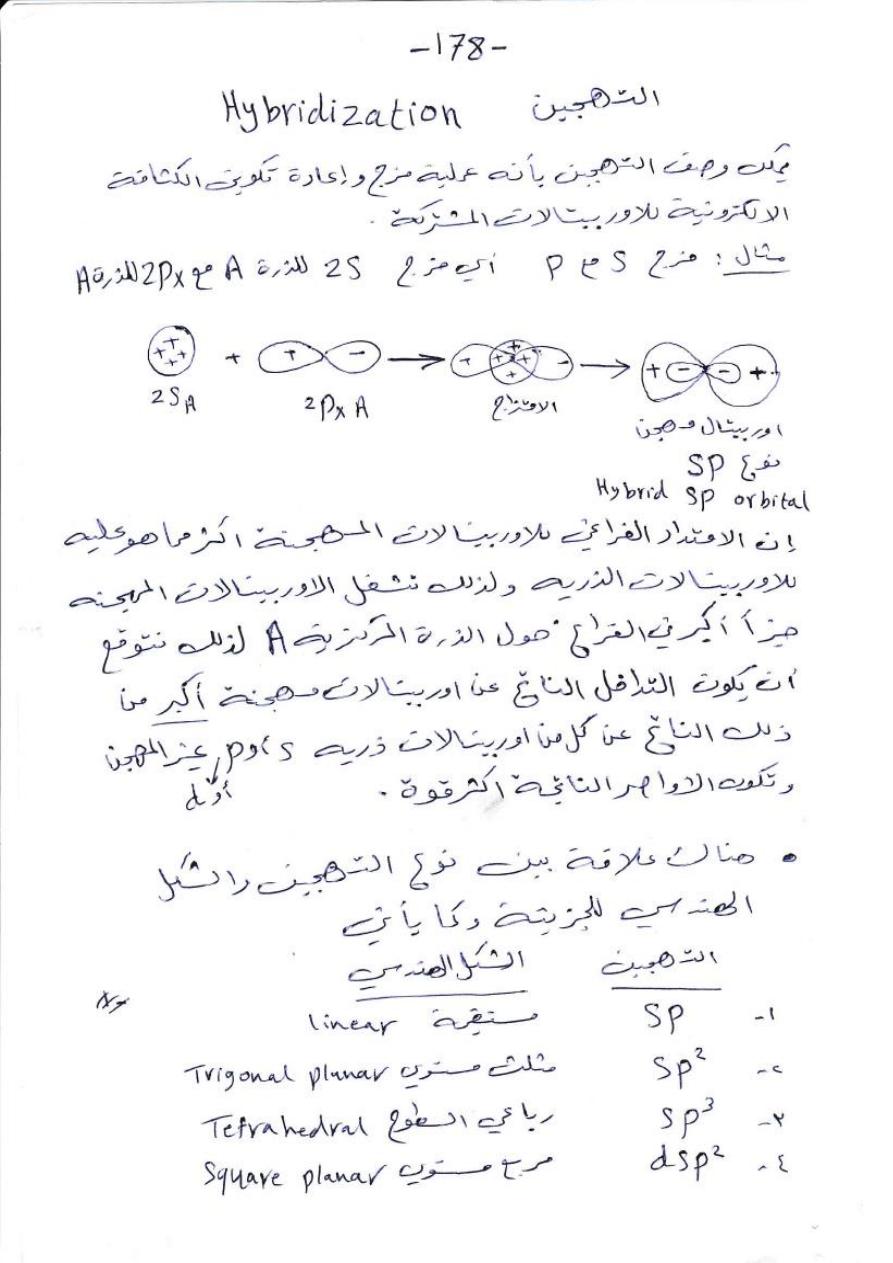 -178-
التهجين Hybridization
يمكن وصف التهجين بأنه عملية مزج وإعادة تكوين الكثافة
الالكترونية للاوربيتالات المشتركة .
مثال : مزج S مع P أي مزج 2S للذرة A مع 2Px للذرة A
2SA + 2Px A
+ -
الامتزاج
+ - - +
اوربيتال مهجن
نوع SP
Hybrid SP orbital
إن الامتداد الفراغي للاوربيتالات المهجنة اكثر مما هو عليه
للاوربيتالات الذريه ولذلك تشغل الاوربيتالات المهجنه
حيزاً أكبر في الفراغ حول الذرة المركزية A لذلك نتوقع
أن يكون التداخل الناتج عن اوربيتالات مهجنة أكبر من
ذلك الناتج عن كل من اوربيتالات ذريه s أو p أو d غير المهجن
وتكون الاواصر الناتجة اكثر قوة .
• هناك علاقة بين نوع التهجين والشكل
الهندسي للجزيئة وكما يأتي
التهجين الشكل الهندسي
١- SP مستقيمة linear
٢- Sp² مثلث مستوي Trigonal planar
٣- Sp³ رباعي السطوح Tetrahedral
٤- dsp² مربع مستوي Square planar